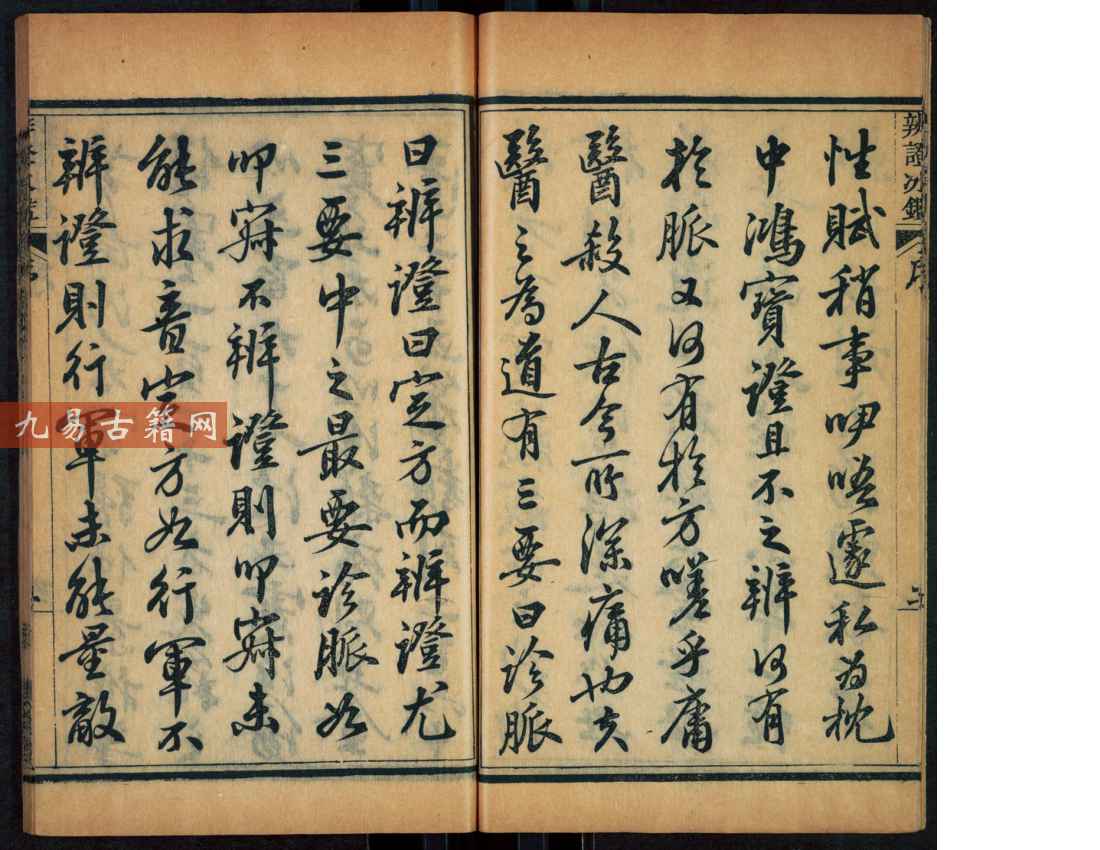 性賦稍事咿唔遽私為枕
中鴻寶證且不之辨何有
於脈又何有於方嗟乎庸
醫殺人古今所深痛也夫
醫之為道有三要曰診脈
曰辨證曰定方而辨證尤
三要中之最要診脈如
叩寂不辨證則叩寂未
能求音定方如行軍不
辨證則行軍未能量敵
辨證冰鑑
序
二
九易古籍网